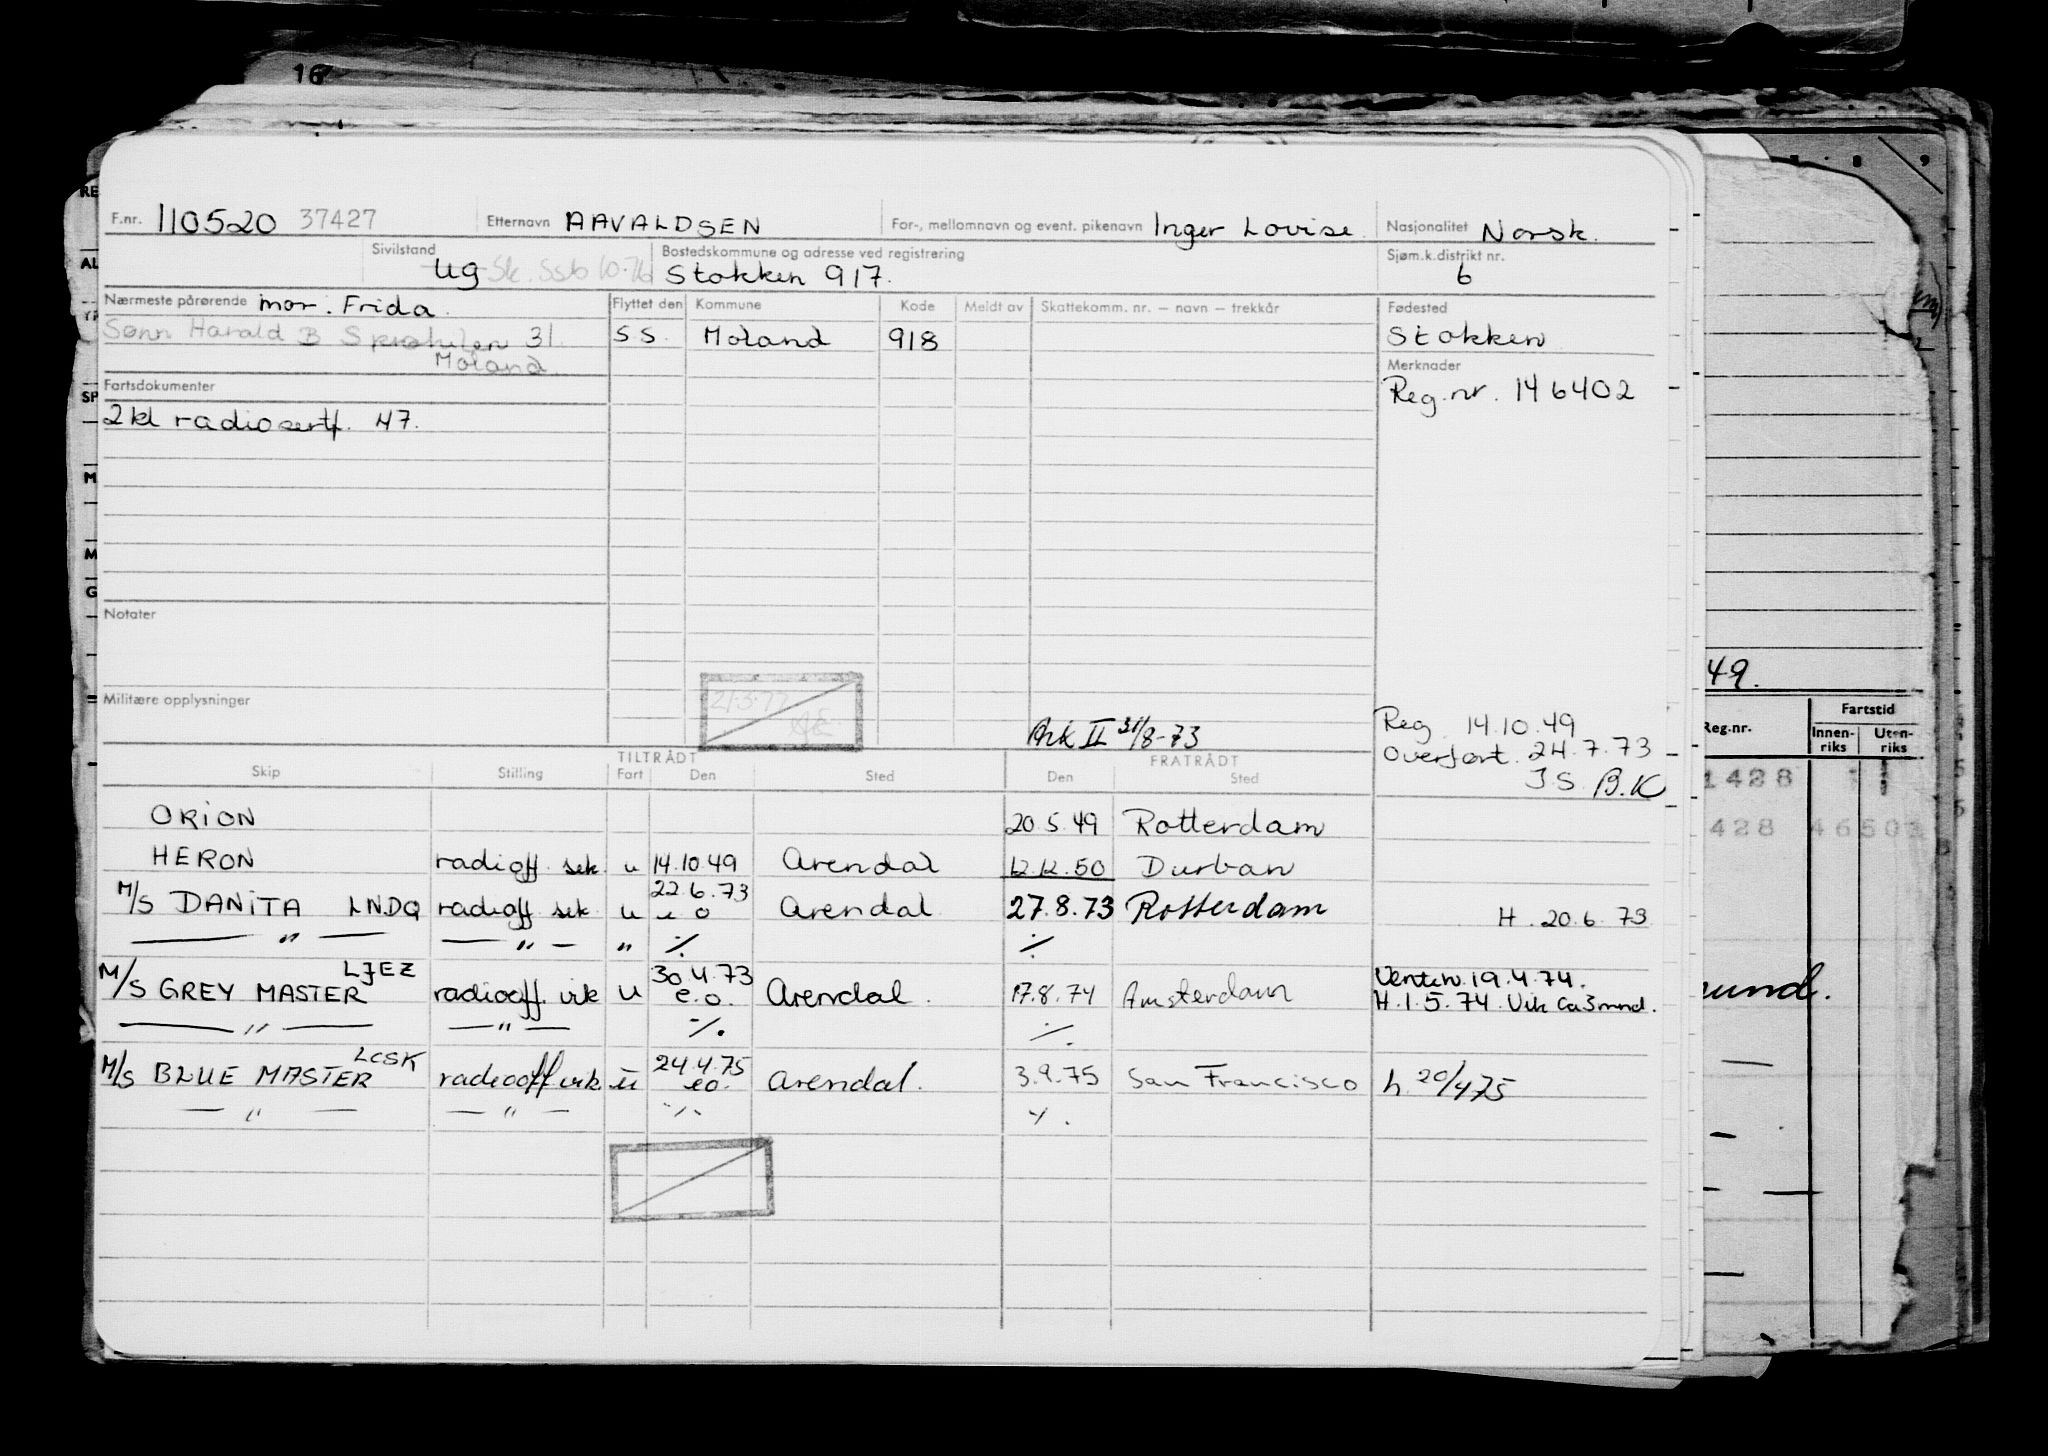 16
8 9
F.nr. 110520 37427 Etternavn AAVALDSEN For-, mellomnavn og event. pikenavn Inger Lovise. Nasjonalitet Norsk.
Sivilstand Bostedskommune og adresse ved registrering Sjøm.k.distrikt nr.
ug Sk. Ssb 10.76 Stokken 917. 6
Nærmeste pårørende mor. Frida. Flyttet den Kommune Kode Meldt av Skattekomm. nr. – navn – trekkår Fødested
Sønn Harald B 31. S.S. Moland 918 Stokken
Moland Merknader
Fartsdokumenter Reg.nr. 146402
2kl radiosertf. 47.
Notater
49.
Militære opplysninger 21.3.77
Ark II 31/8-73 Reg. 14.10.49
Overført. 24.7.73
J S. B.K
Reg.nr. Fartstid
Innen-riks Uten-riks
1428
428 46501
TILTRÅDT FRATRÅDT
Skip Stilling Fart Den Sted Den Sted
ORION 20.5.49 Rotterdam
HERON radioff. sek. u 14.10.49 Arendal 12.12.50 Durban
M/S DANITA LNDQ radioff sek u 22.6.73 e o Arendal 27.8.73 Rotterdam H. 20.6.73
— " — — " — " ./. ./.
M/S GREY MASTER LJEZ radiooff. vik u 30.4.73 e.o. Arendal. 17.8.74 Amsterdam Ventew. 19.4.74.
H.1.5.74. Vik Ca3mnd.
— " — — " — ./. ./.
M/S BLUE MASTER LCSK radiooff vik u 24.4.75 eo. Arendal. 3.9.75 San Francisco h. 20/4 75
— " — — " — ./. ./.